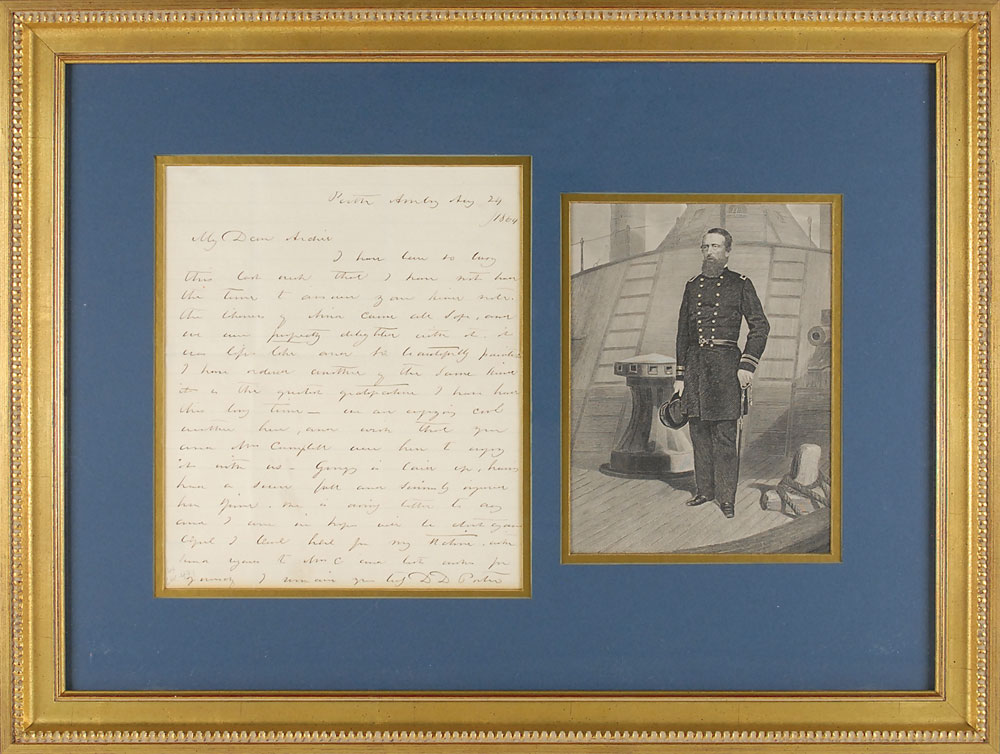 Perth Amboy Aug 24
/1864
My Dear Archie
I have been so busy
this last week that I have not had
the time to answer your kind note.
the of Nina came all safe, and
we are perfectly delighted with it. it
was life like and so beautifully painted
I have ordered another of the same kind
it is the greatest gratification I have had
this long time — we are enjoying cool
weather here, and wish that you
and Mrs Campbell were here to enjoy
it with us — is laid up, having
had a severe fall and seriously injured
her spine. She is doing better to day
and I am in hopes will be about again
I for my Station. with
kind regards to Mrs C and for
yourself I remain yours truly D D Porter